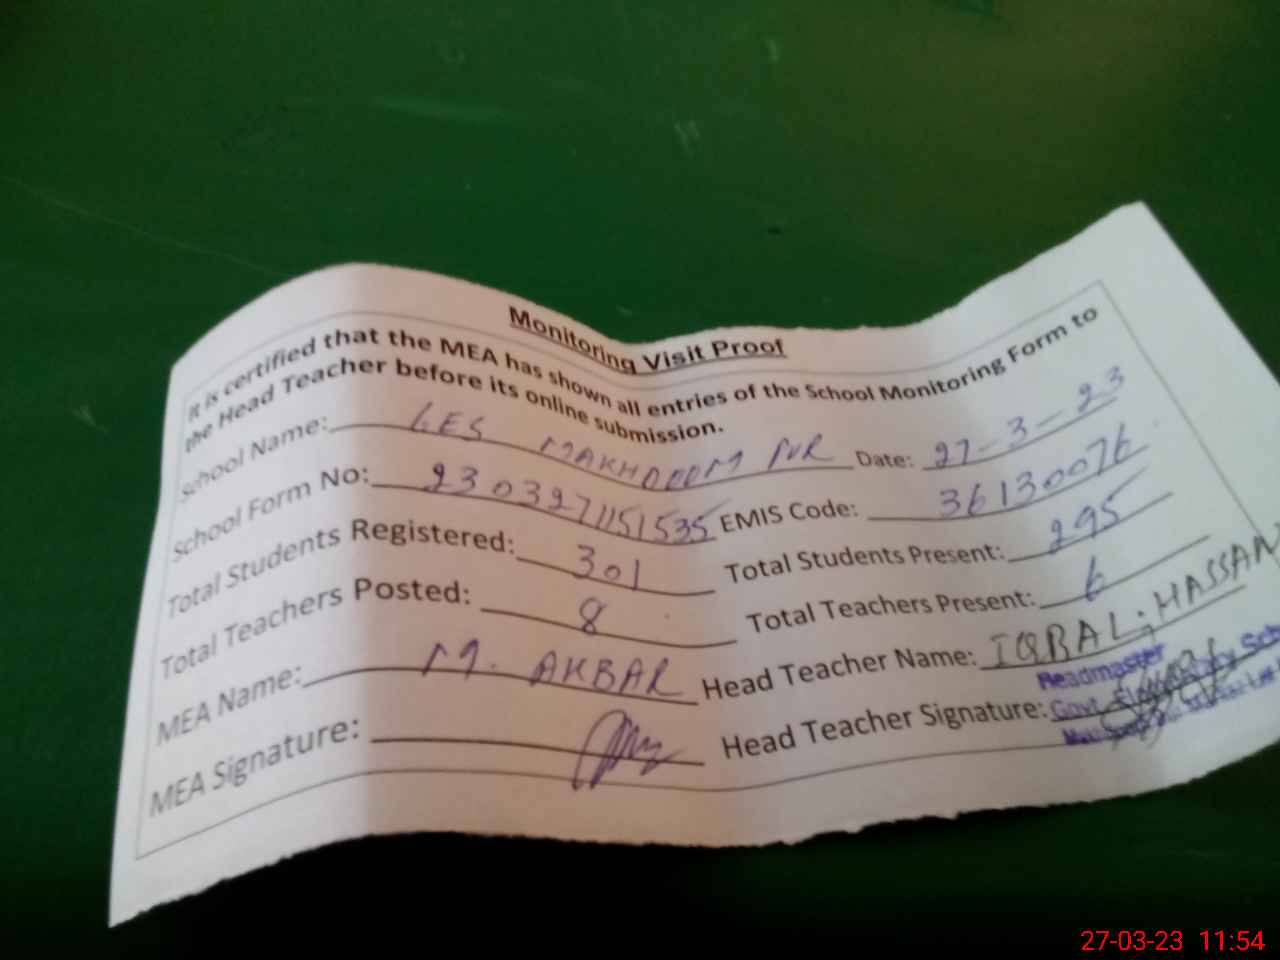 Monitoring Visit Proof
It is certified that the MEA has shown all entries of the School Monitoring Form to
the Head Teacher before its online submission.
School Name: GES MAKHDOOM PUR Date: 27-3-23
School Form No: 2303271151535 EMIS Code: 36130076
Total Students Registered: 301 Total Students Present: 295
Total Teachers Posted: 8 Total Teachers Present: 6
MEA Name: M. AKBAR Head Teacher Name: IQBAL, HASSAN
MEA Signature: Head Teacher Signature:
Headmaster
Govt. Elementary Sch
27-03-23 11:54